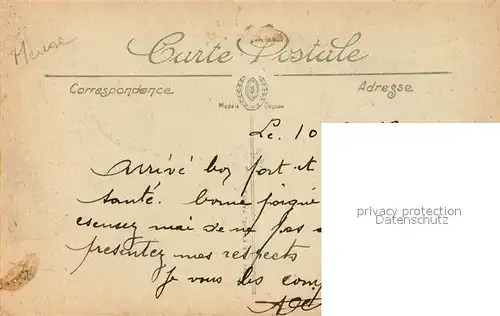 Meuse
Carte Postale
Correspondance
Adresse
Modèle Déposé
Le 10
Arrivé bon port et
santé. bonne poigné
privacy protection
Datenschutz
escusez moi de ne pas
presentez mes respects
Je vous dis